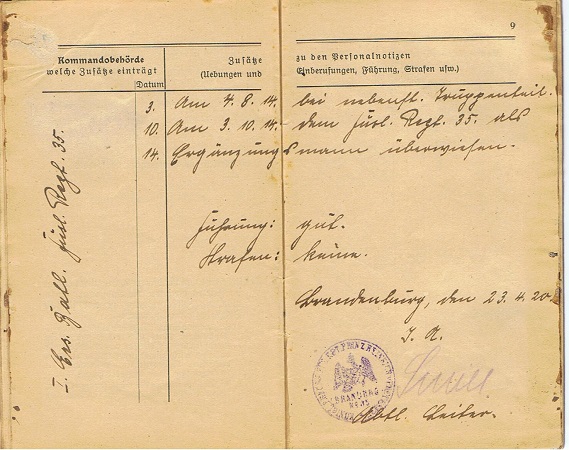 9
Kommandobehörde
welche Zusätze einträgt
Datum
Zusätze zu den Personalnotizen
(Uebungen und Einberufungen, Führung, Strafen usw.)
I. Ers. Batl. Füsl. Regt. 35.
3. Am 4. 8. 14. bei nebenst. Truppenteil.
10. Am 3. 10. 14. dem Füsl. Regt. 35. als
14. Ergänzungsmann überwiesen.
Führung: gut.
Strafen: keine.
Brandenburg, den 23.4.20
I. A.
Abtl. Leiter.